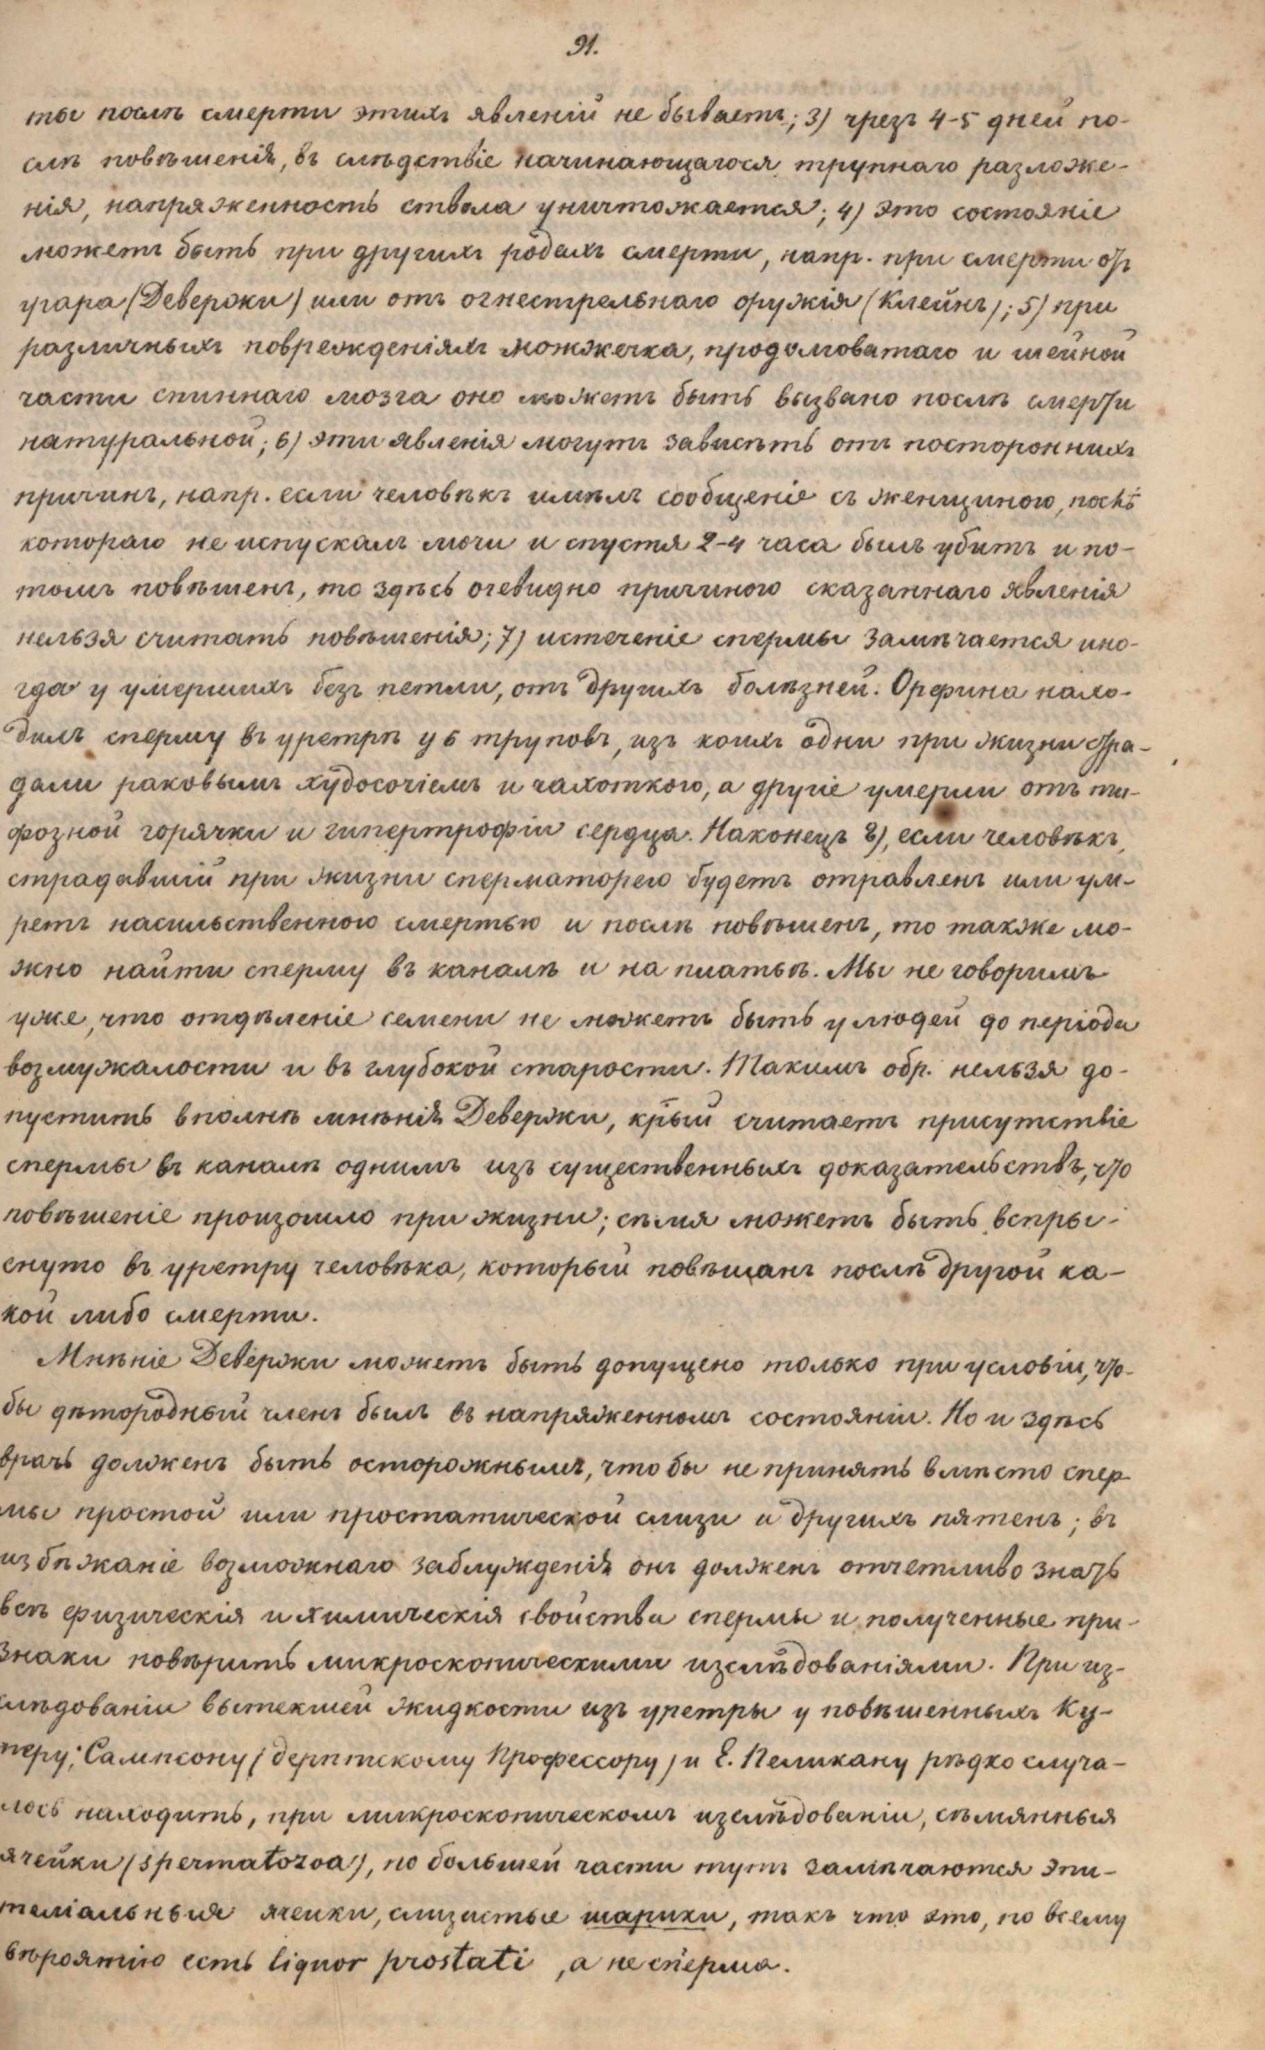 91.
ты послѣ смерти этихъ явленій не бываетъ; 3) чрезъ 4-5 дней по-
слѣ повѣшенія, въ слѣдствіе начинающагося трупнаго разложе-
нія, напряженность ствола уничтожается; 4) это состояніе
можетъ быть при другихъ родахъ смерти, напр. при смерти отъ
угара (Девержи) или отъ огнестрельнаго оружія (Клейнъ); 5) при
различныхъ поврежденіяхъ мозжечка, продолговатаго и шейной
части спиннаго мозга оно можетъ быть вызвано послѣ смерти
натуральной; 6) эти явленія могутъ зависѣть отъ постороннихъ
причинъ, напр. если человѣкъ имѣлъ сообщеніе съ женщиною, послѣ
котораго не испускалъ мочи и спустя 2-4 часа былъ убитъ и по-
томъ повѣшенъ, то здѣсь очевидно причиною сказаннаго явленія
нельзя считать повѣшенія; 7) истеченіе спермы замѣчается ино-
гда у умершихъ безъ петли, отъ другихъ болѣзней. Орфила нахо-
дилъ сперму въ уретрѣ у 6 труповъ, изъ коихъ одни при жизни стра-
дали раковымъ худосочіемъ и чахоткою, а другіе умерли отъ ти-
фозной горячки и гипертрофіи сердца. Наконецъ 8), если человѣкъ,
страдавшій при жизни сперматорею будетъ отравленъ или ум-
ретъ насильственною смертью и послѣ повѣшенъ, то также мо-
жно найти сперму въ каналѣ и на платьѣ. Мы не говоримъ
уже, что отдѣленіе семени не можетъ быть у людей до періода
возмужалости и въ глубокой старости. Такимъ обр. нельзя до-
пустить вполнѣ мнѣнія Девержи, крый считаетъ присутствіе
спермы въ каналѣ однимъ изъ существенныхъ доказательствъ, что
повѣшеніе произошло при жизни; сѣмя можетъ быть вспры-
снуто въ уретру человѣка, который повѣшанъ послѣ другой ка-
кой либо смерти.
Мнѣніе Девержи можетъ быть допущено только при условіи, что-
бы дѣтородный членъ былъ въ напряженномъ состояніи. Но и здѣсь
врачъ долженъ быть осторожнымъ, чтобы не принять вмѣсто спер-
мы простой или простатической слизи и другихъ пятенъ; въ
избѣжаніе возможнаго заблужденія онъ долженъ отчетливо знать
всѣ физическія и химическія свойства спермы и полученные при-
знаки повѣрить микроскопическими изслѣдованіями. При из-
слѣдованіи вытекшей жидкости изъ уретры у повѣшенныхъ Ку-
перу, Сампсону (дерптскому Профессору) и Е. Пеликану рѣдко случа-
лось находить, при микроскопическомъ изслѣдованіи, сѣмянныя
ячейки (spermatozoa), по большей части тутъ замѣчаются эпи-
теліальныя ячейки, слизистые шарики, такъ что это, по всему
вѣроятію есть liquor prostati, а не сперма.